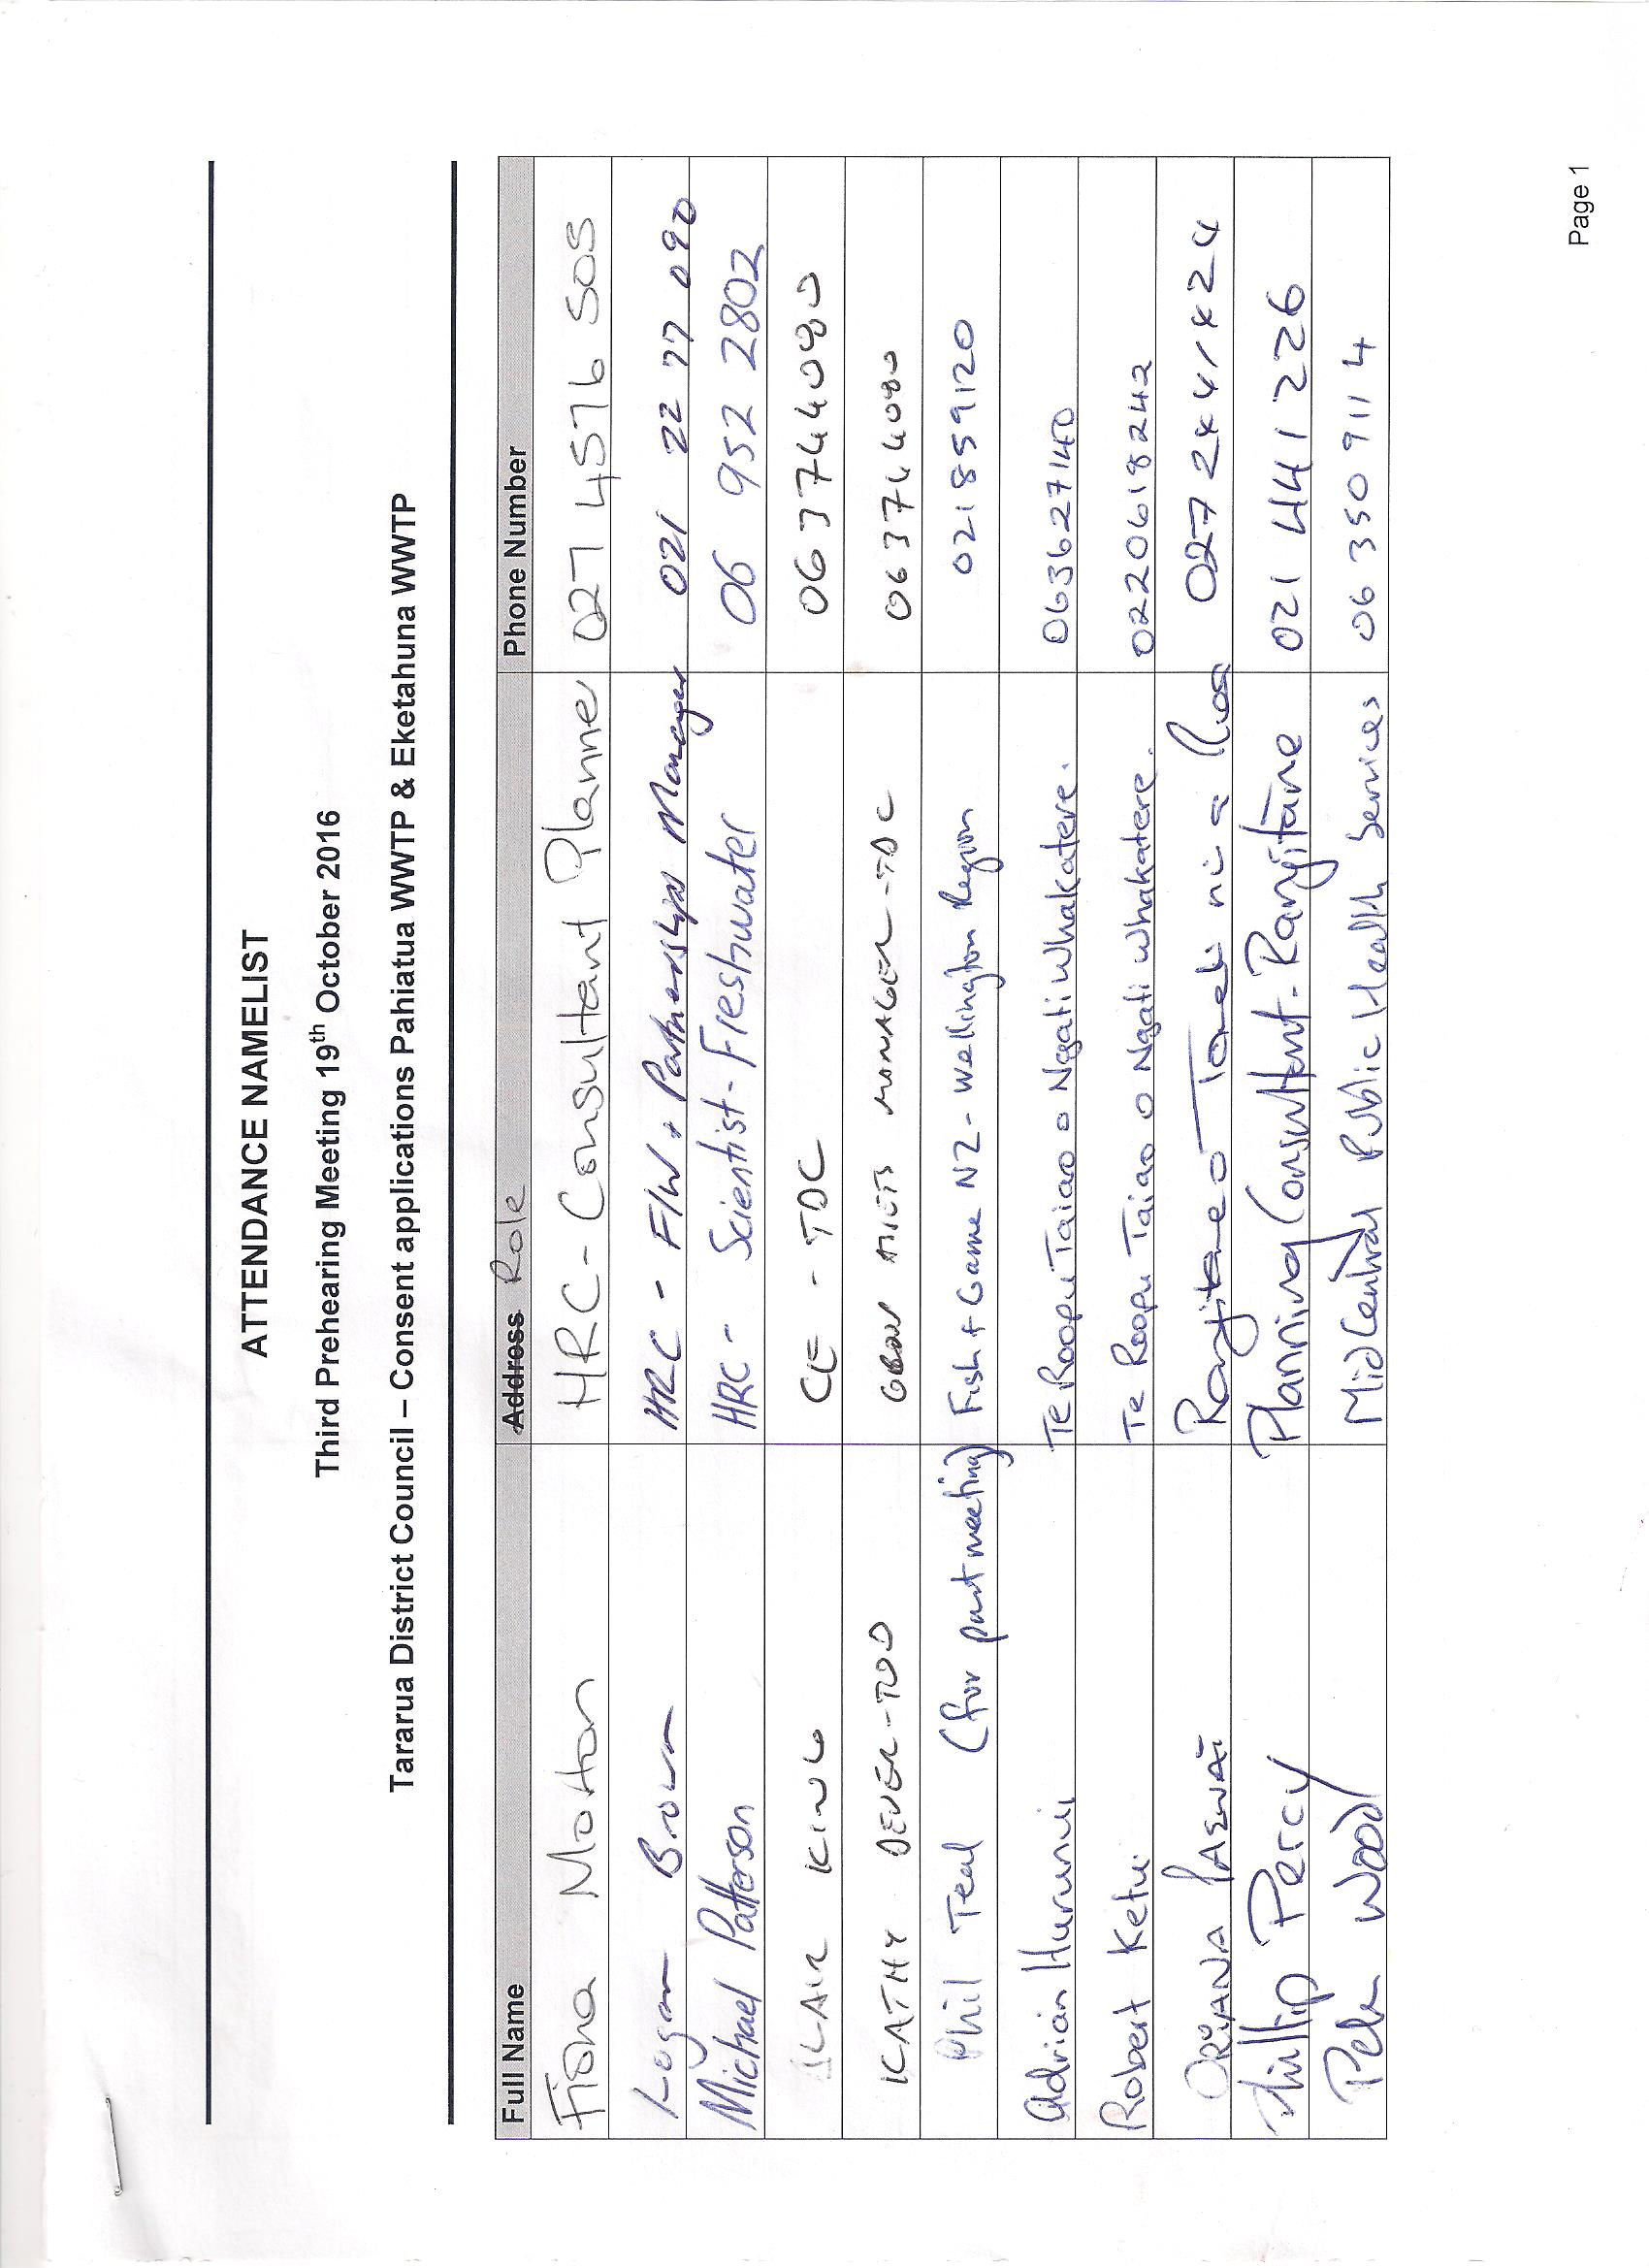 ATTENDANCE NAMELIST
Third Prehearing Meeting 19th October 2016
Tararua District Council – Consent applications Pahiatua WWTP & Eketahuna WWTP
Full Name Address Role Phone Number
Fiona Morton HRC - Consultant Planner 027 4576 505
Logan Brown HRC - F/W & Partnerships Manager 021 22 77 090
Michael Patterson HRC - Scientist - Freshwater 06 952 2802
BLAIR KING CE - TDC 06 3744080
KATHY DEVER-TOD MANAGER - TDC 06 3744080
Phil Teal (for part meeting) Fish & Game NZ - Wellington Region 021859120
Adrian Hurunui Te Roopu Taiao o Ngati Whakatere. 063627140
Robert Ketu. Te Roopu Taiao o Ngati Whakatere. 0220618242
ORIANA PAEWAI Rangitane o Tamaki nui a Rua 027 2441424
Phillip Percy Planning Consultant - Rangitāne 021 441 226
Peter Wood MidCentral Public Health Services 06 350 9114
Page 1